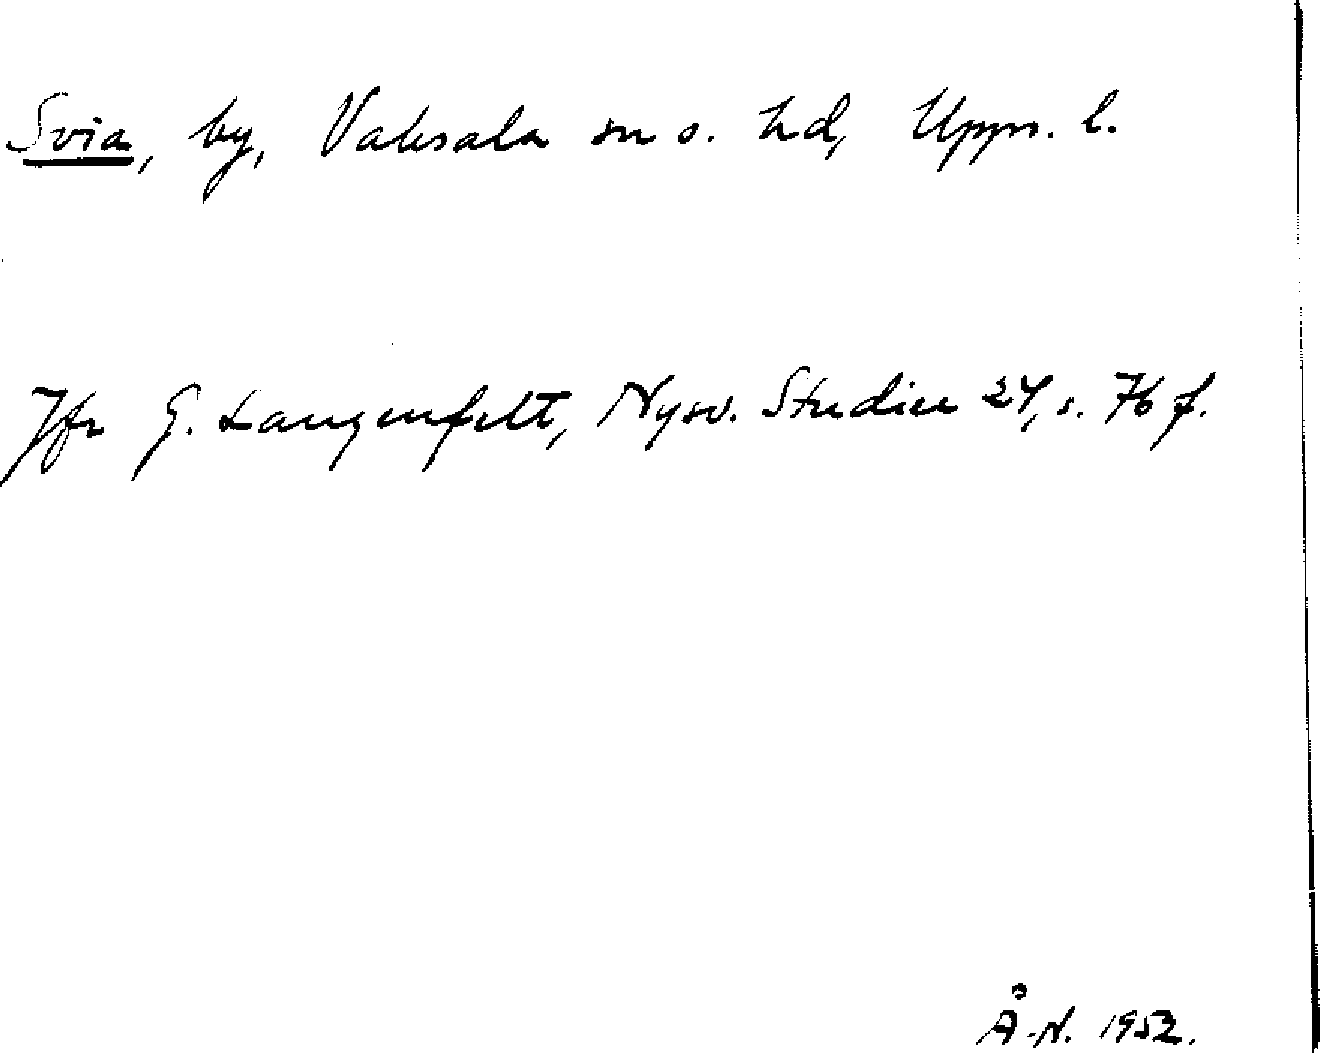 Svia, by, Vaksala sn o. hd, Upps. l.
Jfr G. Langenfelt, Nysv. Studier 24, s. 76 f.
Å-N. 1952.